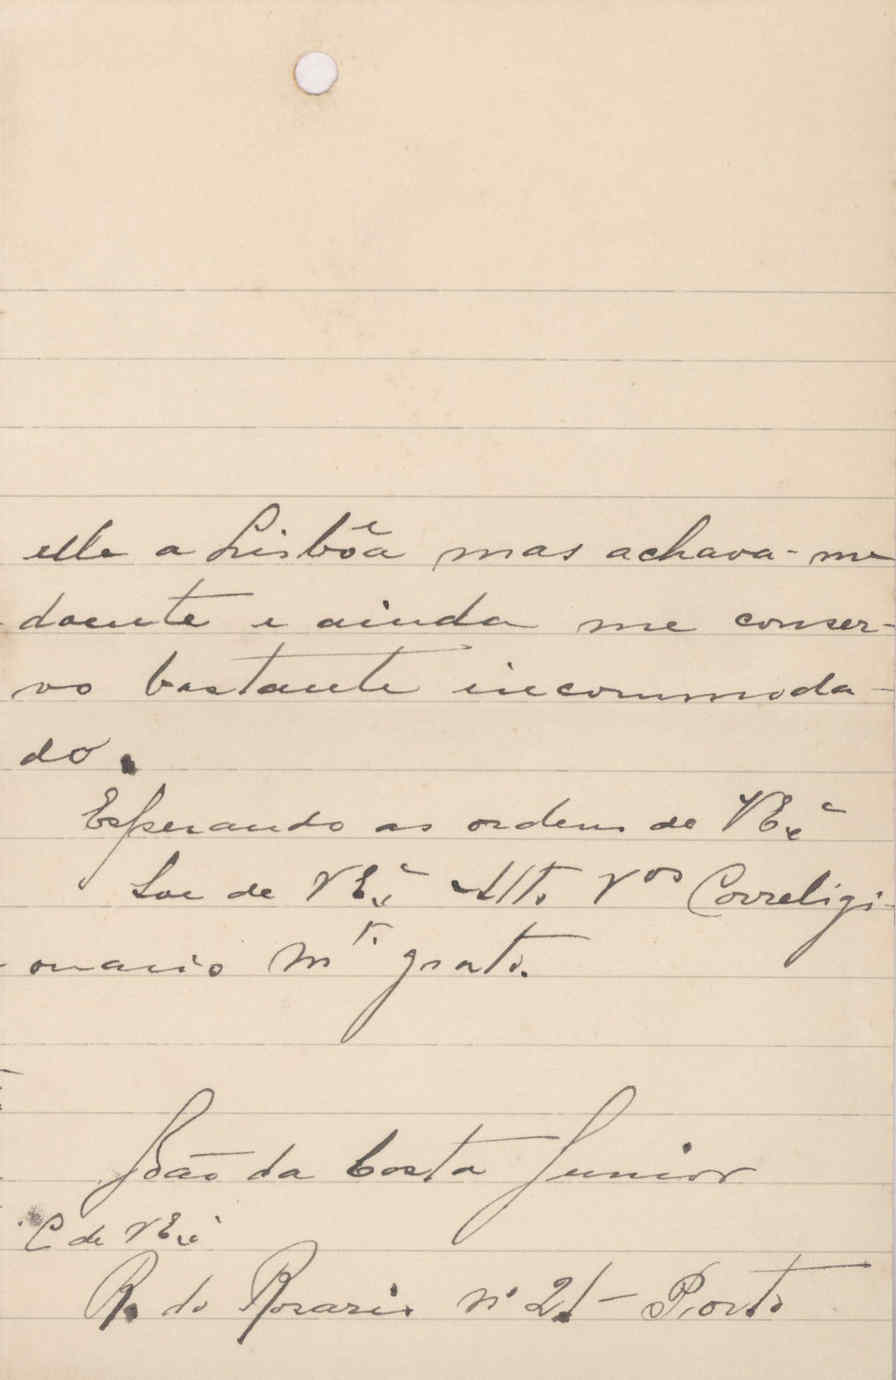 elle a Lisbôa mas achava-me
doente e ainda me conser-
vo bastante incommoda-
do.
Esperando as ordens de VExª
Sou de VExª Attº Vºs Correligi-
onario Mtº grato.
João da Costa Junior
C de VExª
R. do Rosario nº 21 - Porto